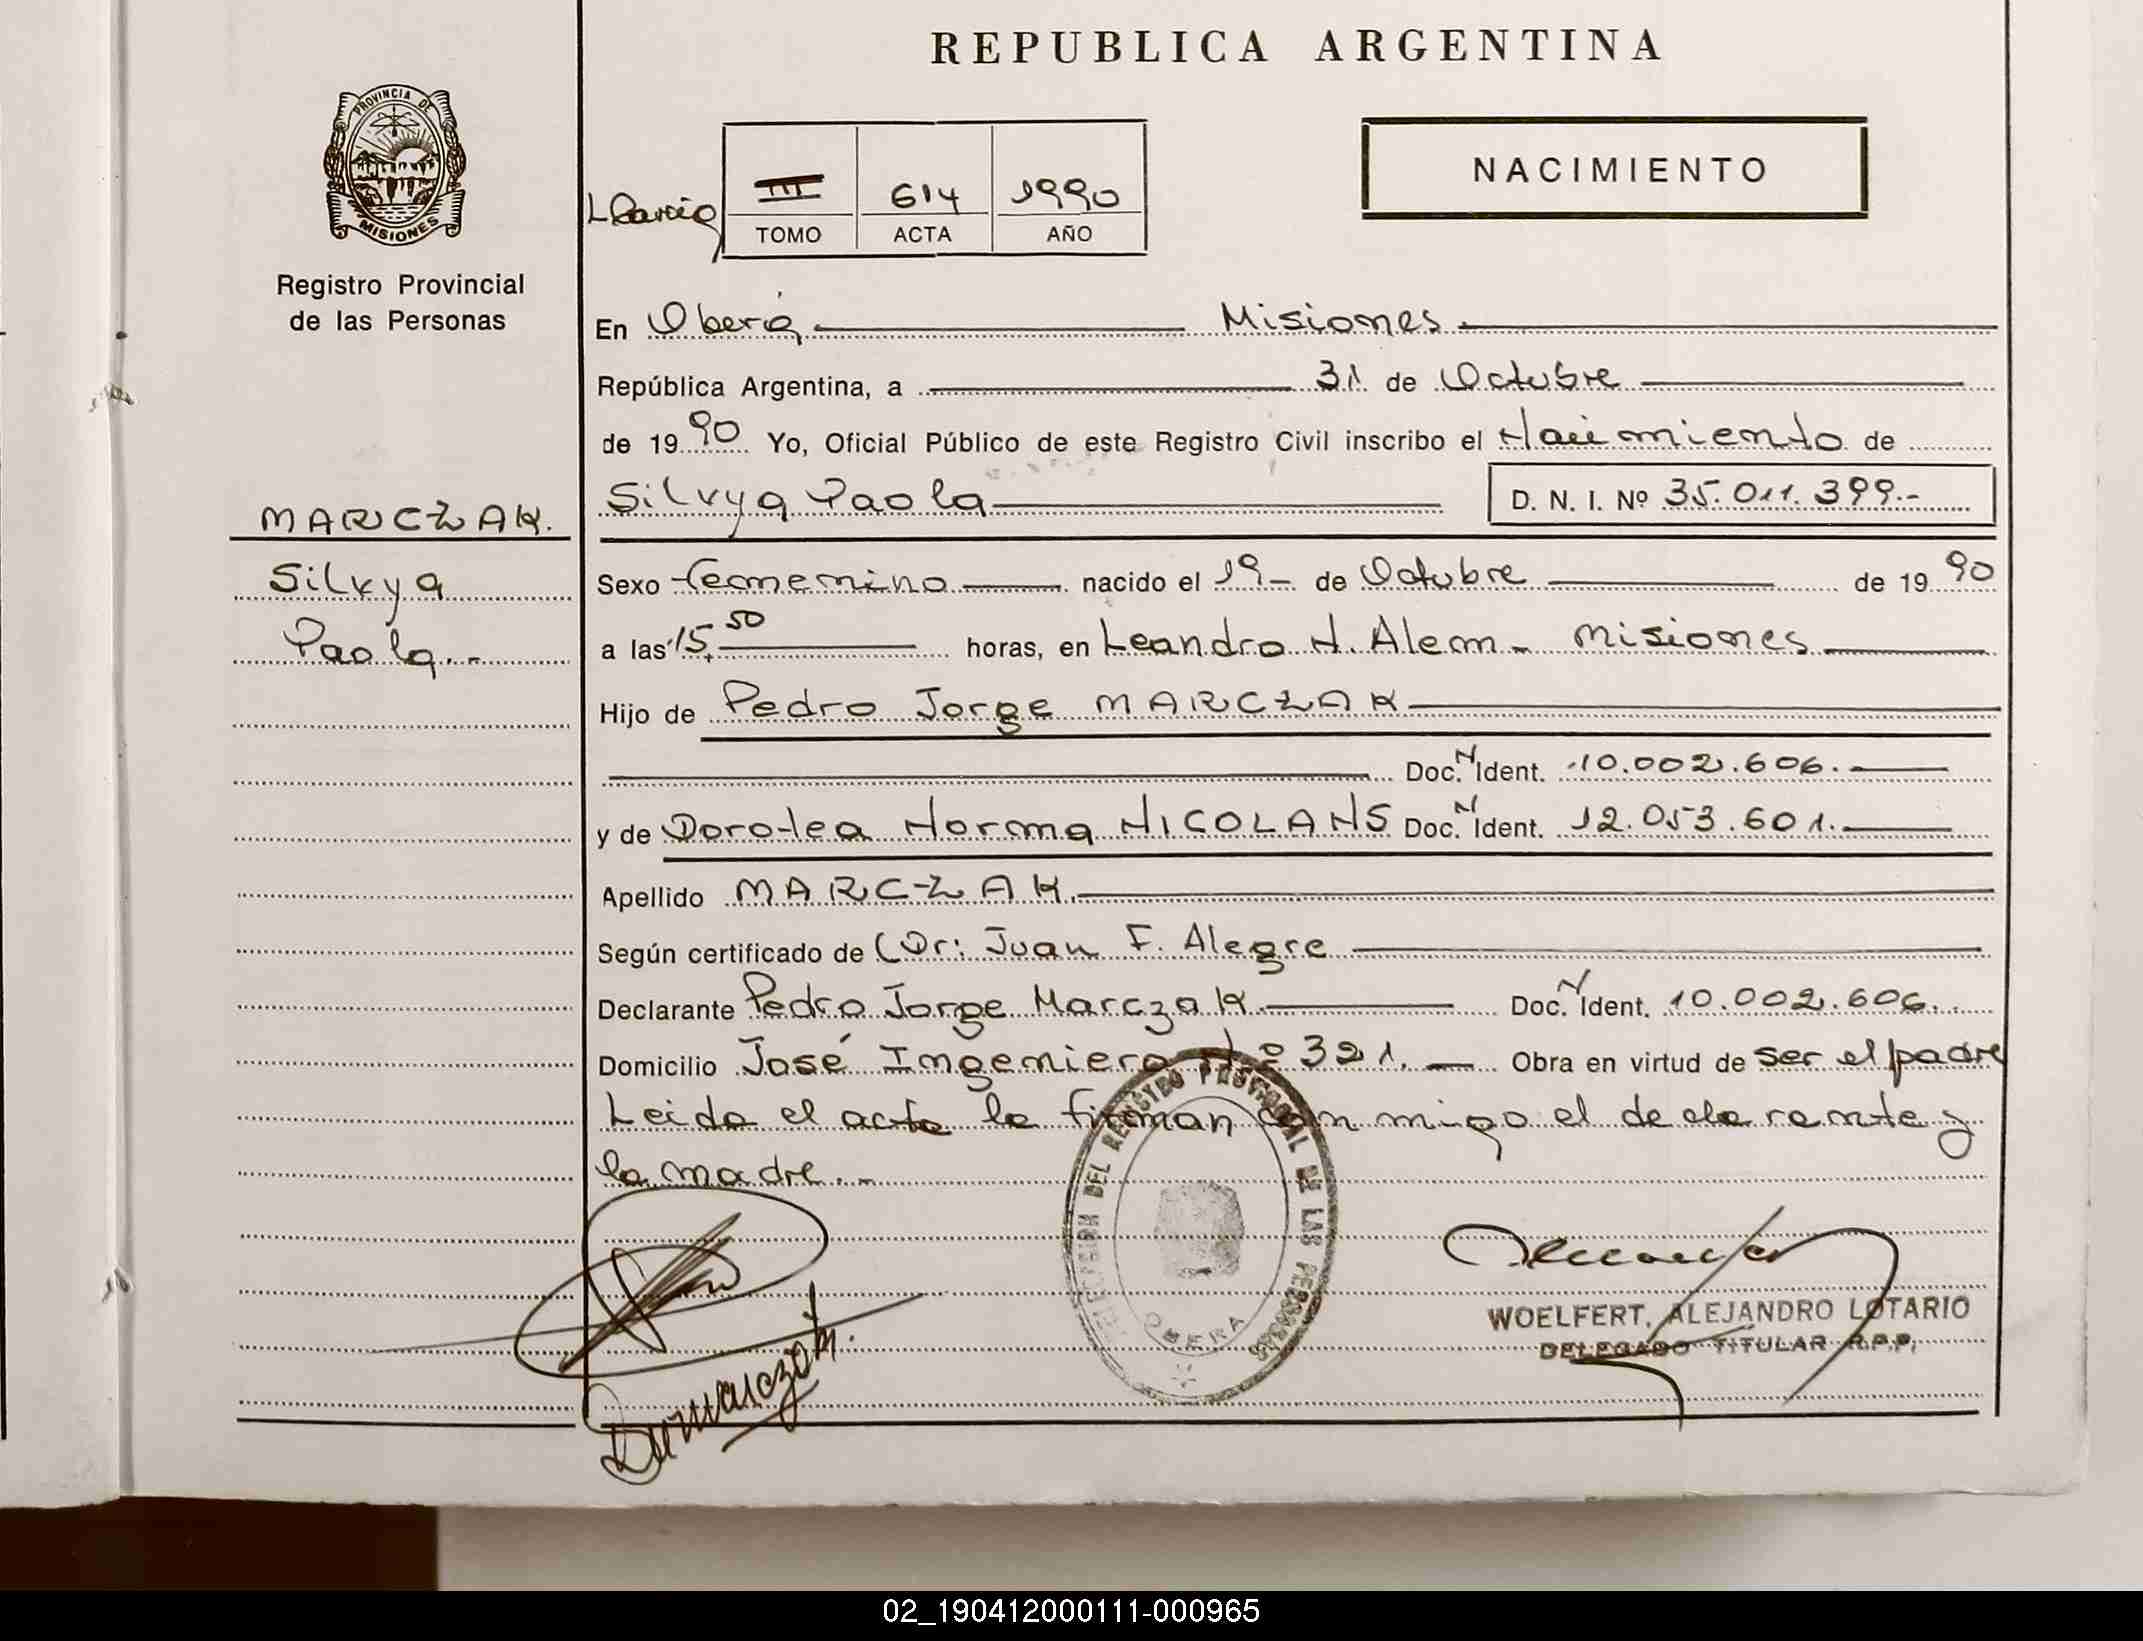 REPUBLICA ARGENTINA
PROVINCIA DE
MISIONES
NACIMIENTO
III 614 1990
TOMO ACTA AÑO
Registro Provincial
de las Personas
En Oberá Misiones
República Argentina, a 31 de Octubre
de 1990 Yo, Oficial Público de este Registro Civil inscribo el Nacimiento de
Silvya Paola D. N. I. Nº 35.011.399.-
MARCZAK.
Silvya
Paola.-
Sexo femenino nacido el 19 de Octubre de 1990
a las 15,50 horas, en Leandro N. Alem - Misiones
Hijo de Pedro Jorge MARCZAK
Doc. N Ident. 10.002.606.
y de Dorotea Norma NICOLANS Doc. N Ident. 12.053.601.
Apellido MARCZAK.
Según certificado de Dr: Juan F. Alegre
Declarante Pedro Jorge Marczak. Doc. N Ident. 10.002.606.
Domicilio José Ingeniero Nº 321. Obra en virtud de ser el padre
Leida el acta la firman conmigo el declarante y
la madre.-
DELEGACION DEL REGISTRO PROVINCIAL DE LAS PERSONAS
OBERA
WOELFERT, ALEJANDRO LOTARIO
DELEGADO TITULAR R.P.P.
02_190412000111-000965